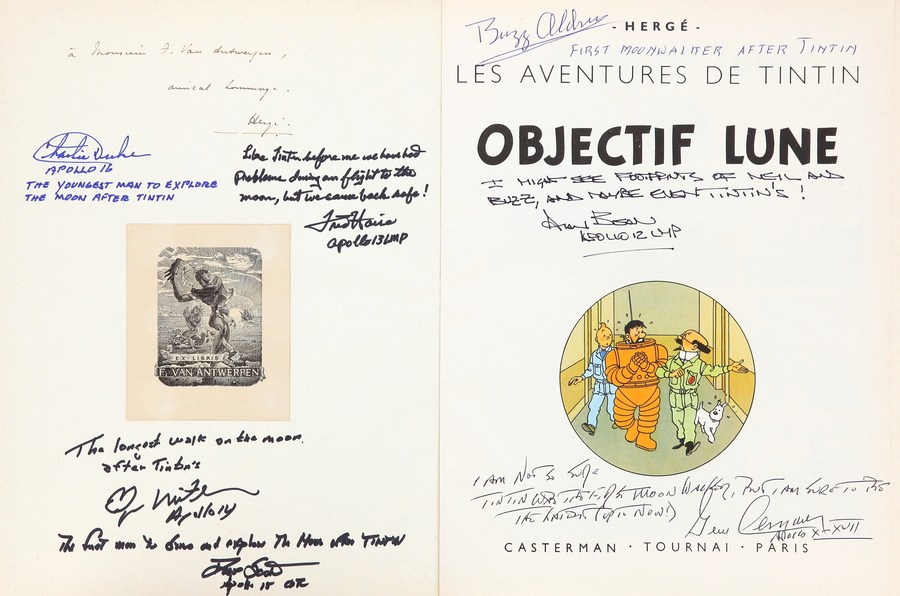 à Monsieur F. Van Antwerpen,
amical hommage,
Hergé.
Charlie Duke
APOLLO 16
THE YOUNGEST MAN TO EXPLORE
THE MOON AFTER TINTIN
Like Tintin before me we have had
problems during our flight to the
moon, but we came back safe!
Fred Haise
Apollo 13 LMP
EX-LIBRIS
F. VAN ANTWERPEN
The longest walk on the moon
after Tintin's
Apollo 14
The first man to drive and explore the Moon after TINTIN
Dave Scott
Apollo 15 CDR
Buzz Aldrin
- HERGÉ -
FIRST MOONWALKER AFTER TINTIN
LES AVENTURES DE TINTIN
OBJECTIF LUNE
I MIGHT SEE FOOTPRINTS OF NEIL AND
BUZZ, AND MAYBE EVEN TINTIN'S!
Alan Bean
APOLLO 12 LMP
I AM NOT SO SURE
TINTIN WAS THE FIRST MOON WALKER, BUT I AM SURE I'M
THE LATEST (UP TO NOW!)
Gene Cernan
APOLLO X-XVII
CASTERMAN · TOURNAI · PARIS